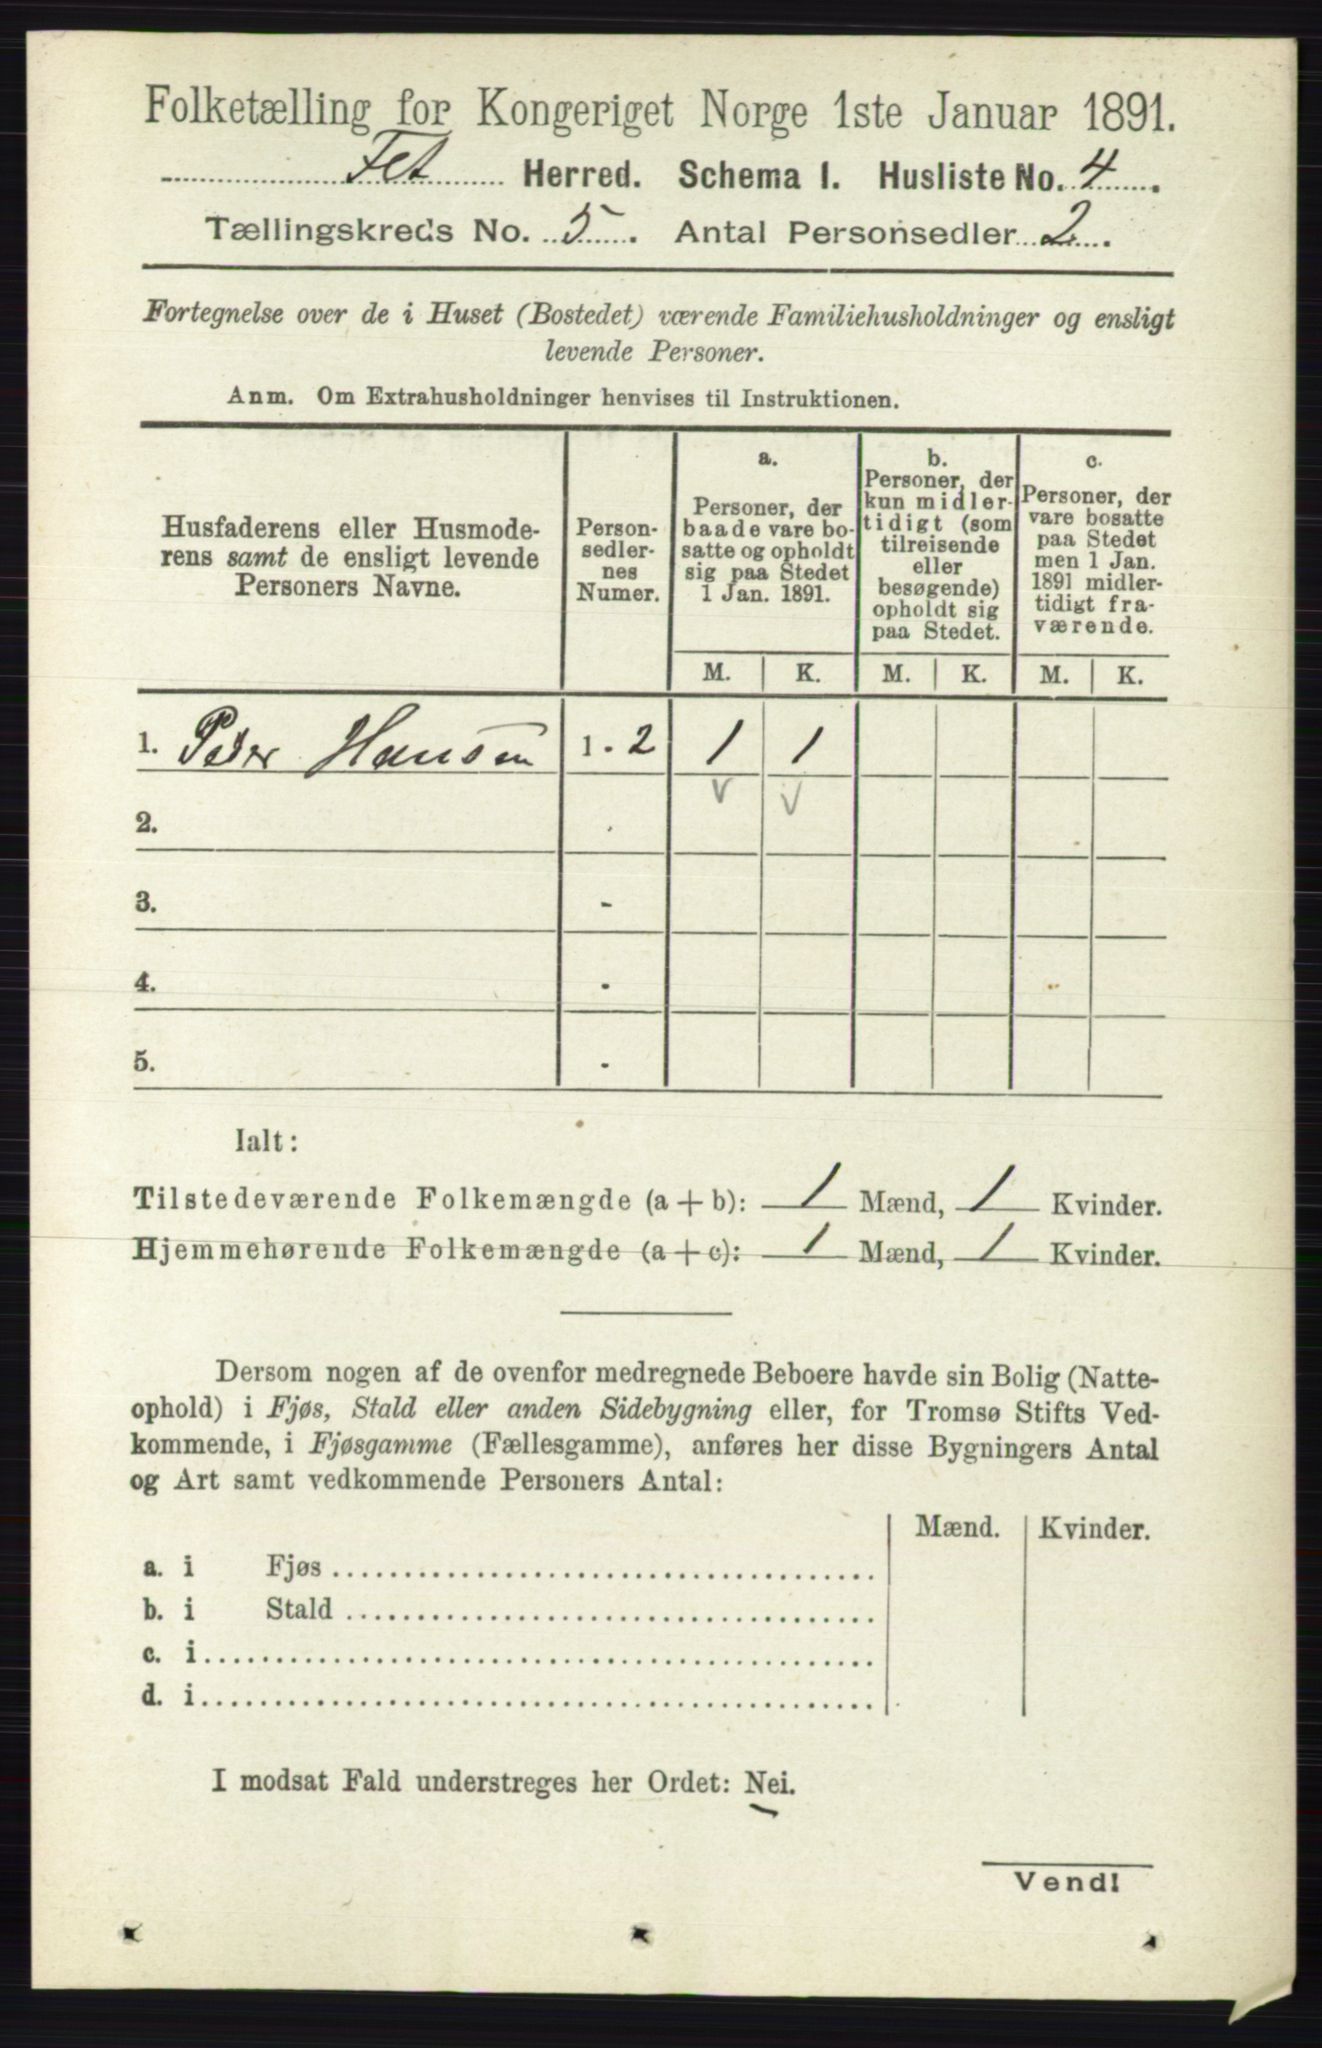 Folketælling for Kongeriget Norge 1ste Januar 1891.
Fet Herred. Schema 1. Husliste No. 4.
Tællingskreds No. 5. Antal Personsedler 2.
Fortegnelse over de i Huset (Bostedet) værende Familiehusholdninger og ensligt
levende Personer.
Anm. Om Extrahusholdninger henvises til Instruktionen.
Husfaderens eller Husmode-
rens samt de ensligt levende
Personers Navne.
Person-
sedler-
nes
Numer.
a.
Personer, der
baade vare bo-
satte og opholdt
sig paa Stedet
1 Jan. 1891.
b.
Personer, der
kun midler-
tidigt (som
tilreisende
eller
besøgende)
opholdt sig
paa Stedet.
c.
Personer, der
vare bosatte
paa Stedet
men 1 Jan.
1891 midler-
tidigt fra-
værende.
M. K. M. K. M. K.
1. Peder Hansen 1 - 2 1 1
2.
3. -
4. -
5. -
Ialt:
Tilstedeværende Folkemængde (a + b): 1 Mænd, 1 Kvinder.
Hjemmehørende Folkemængde (a + c): 1 Mænd, 1 Kvinder.
Dersom nogen af de ovenfor medregnede Beboere havde sin Bolig (Natte-
ophold) i Fjøs, Stald eller anden Sidebygning eller, for Tromsø Stifts Ved-
kommende, i Fjøsgamme (Fællesgamme), anføres her disse Bygningers Antal
og Art samt vedkommende Personers Antal:
Mænd. Kvinder.
a. i Fjøs
b. i Stald
c. i
d. i
I modsat Fald understreges her Ordet: Nei.
Vend!